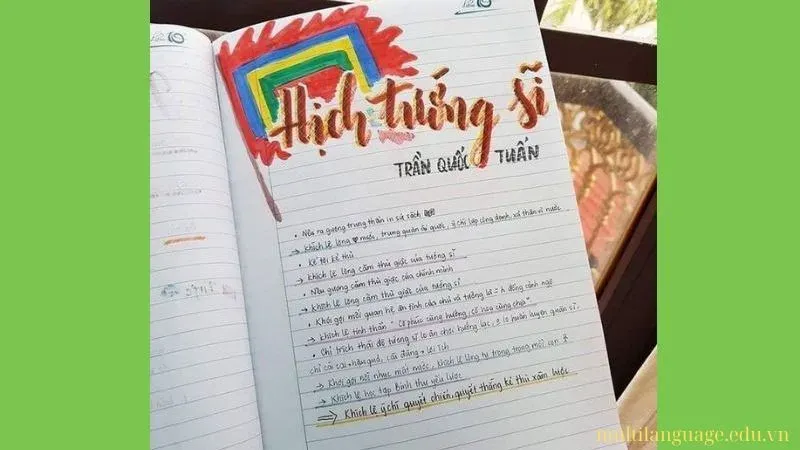 Hịch tướng sĩ
TRẦN QUỐC TUẤN
• Nêu ra gương trung thần in sử sách
→ Khích lệ lòng ♥ nước, trung quân ái quốc, ý chí lập công danh, xả thân vì nước
• Kể tội kẻ thù
→ Khích lệ lòng căm thù giặc của tướng sĩ
• Nêu gương căm thù giặc của chính mình
→ Khích lệ lòng căm thù giặc của tướng sĩ
• Khơi gợi mối quan hệ ân tình của chủ và tướng sĩ = đồng cảnh ngộ
→ Khích lệ tinh thần "có phúc cùng hưởng, có họa cùng chịu"
• Chỉ trích thái độ tướng sĩ lo ăn chơi hưởng lạc, lo huấn luyện quân sĩ.
chỉ cái sai + hậu quả, cái đúng + lợi ích
→ Khơi gợi nỗi nhục mất nước, khích lệ lòng tự trọng trong mỗi con
→ Khích lệ học tập Binh thư yếu lược
⇒ Khích lệ ý chí quyết chiến, quyết thắng kẻ thù xâm lược
multilanguage.edu.vn